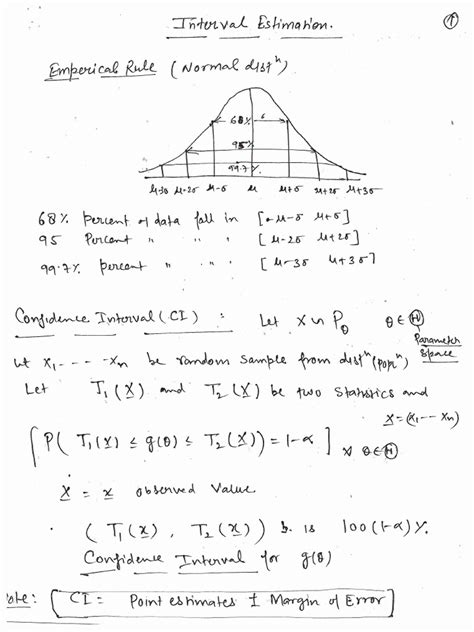 Interval Estimation. ①
Emperical Rule (Normal distⁿ)
68% σ
95%
99.7%
μ-3σ μ-2σ μ-σ μ μ+σ μ+2σ μ+3σ
68% percent of data fall in [μ-σ μ+σ]
95 Percent " " " [μ-2σ μ+2σ]
99.7% percent " " " [μ-3σ μ+3σ]
Confidence Interval (CI) : Let X ~ P_θ θ ∈ Ⓗ
Parameter
Space
let x₁ - - - - xₙ be random sample from distⁿ (popⁿ)
Let T₁(X) and T₂(X) be two statistics and
X = (x₁ -- xₙ)
[P(T₁(X) ≤ g(θ) ≤ T₂(X)) = 1-α] ∀ θ∈Ⓗ
X = x observed value
(T₁(x), T₂(x)) is 100(1-α)%
Confidence Interval for g(θ)
ote: [CI = Point estimates ± Margin of Error]